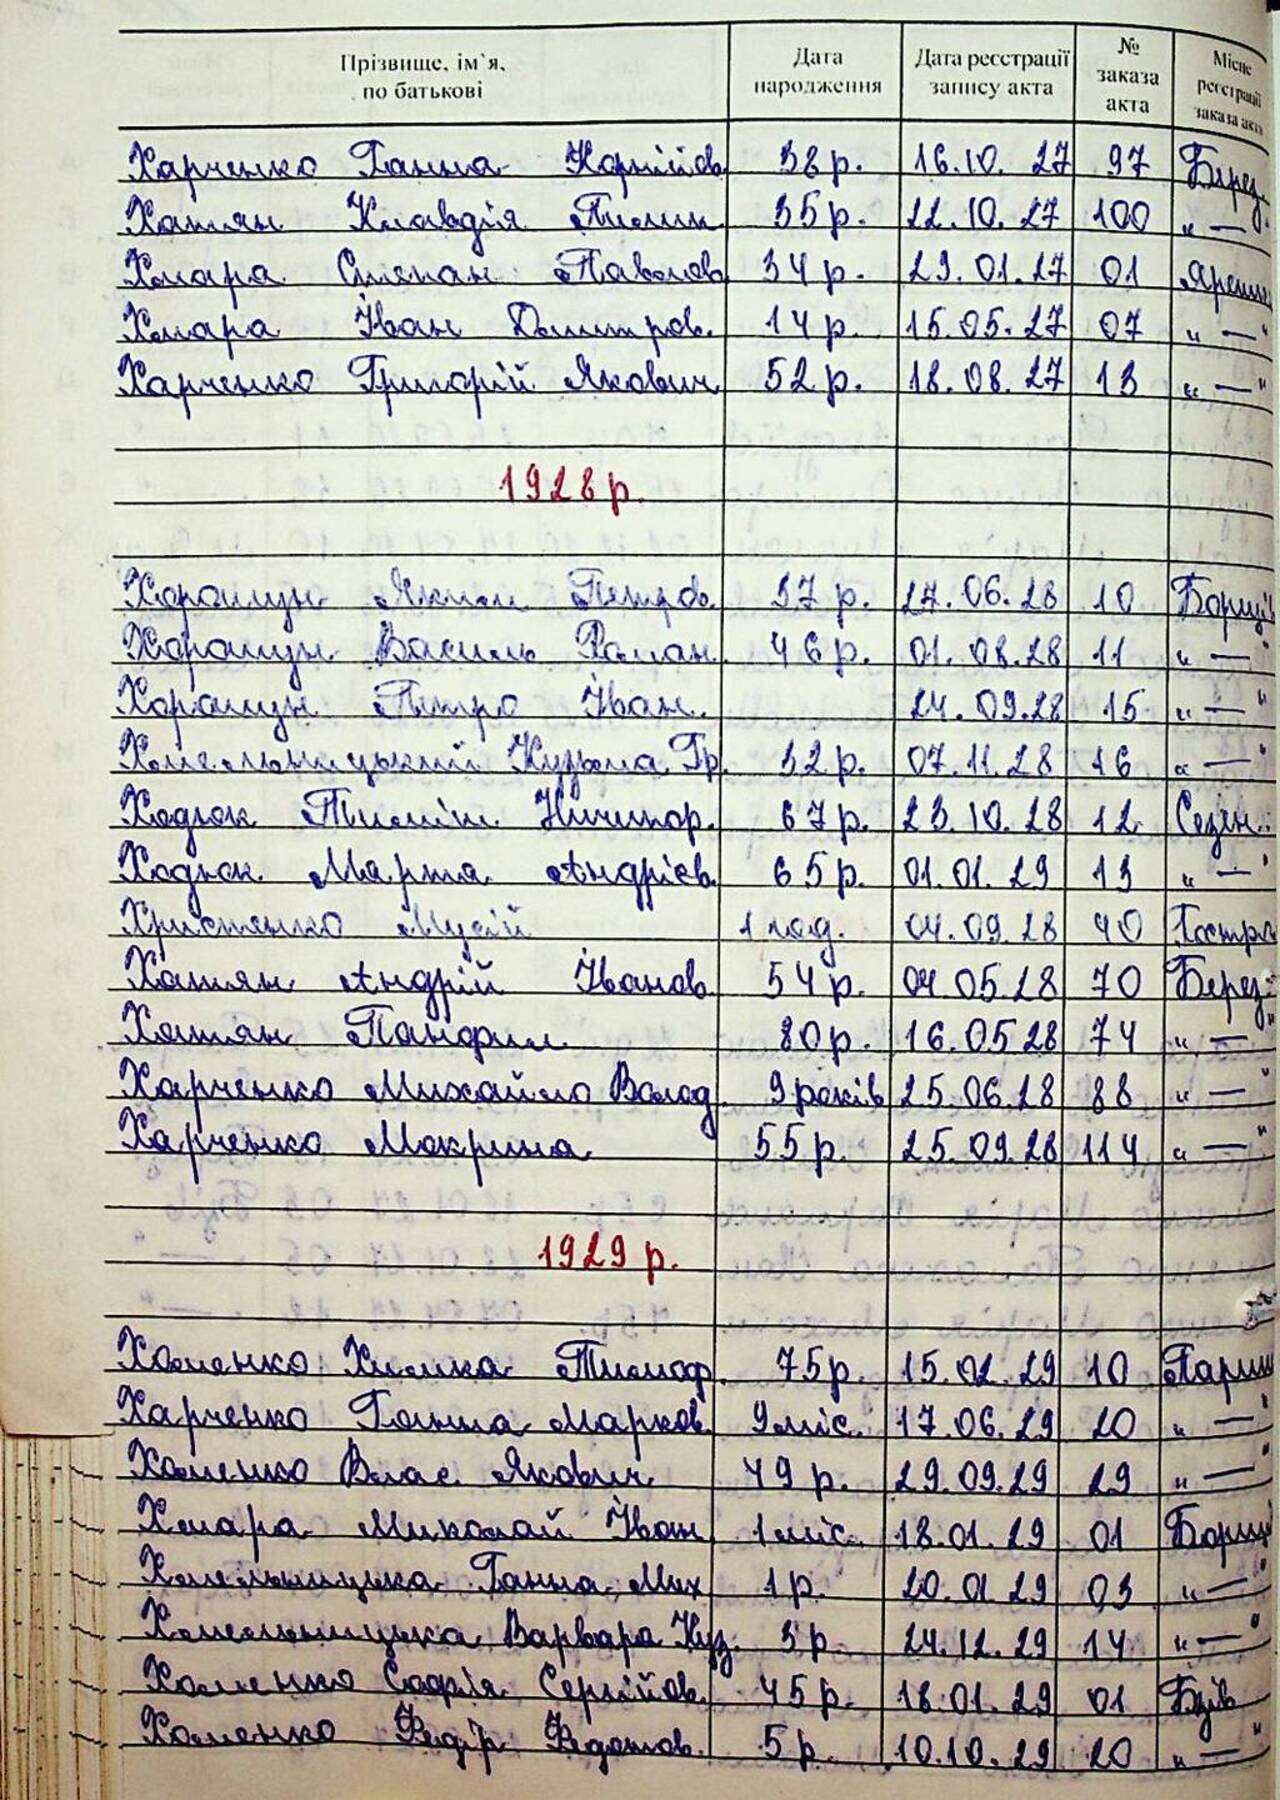 Прізвище, ім`я, по батькові Дата народження Дата реєстрації запису акта № заказа акта Місце реєстрації заказа акта
Харченко Ганна Корнійов. 38 р. 16.10.27 97 Берез.
Хатян Клавдія Пилип. 35 р. 22.10.27 100 „—"
Хмара Степан Павлов. 34 р. 29.01.27 01
Хмара Іван Дмитров. 14 р. 15.05.27 07 „—"
Харченко Григорій Якович 52 р. 18.08.27 13 „—"
1928 р.
Хоролець Яким Петров. 37 р. 27.06.28 10 Борщів
Василь Роман. 46 р. 01.08.28 11 „—"
Петро Іван. 24.09.28 15 „—"
Хмельницький Кузьма Гр. 32 р. 07.11.28 16 „—"
Ходюк Тиміш Ничипор. 67 р. 23.10.28 12 Сезен.
Ходюк Марта Андрієв. 65 р. 01.01.29 13 „—"
Христенко Мусій 1 год. 04.09.28 40 Гостра
Хатян Андрій Іванов. 54 р. 04.05.28 70 Берез.
Хатян Панфил 80 р. 16.05.28 74 „—"
Харченко Михайло Волод. 9 років 25.06.28 88 „—"
Харченко Мокрина 55 р. 25.09.28 114 „—"
1929 р.
Хоменко Химка Тимоф. 75 р. 15.02.29 10 Париш
Харченко Ганна Марков. 9 міс. 17.06.29 20 „—"
Хоменко Влас Якович 49 р. 29.09.29 29 „—"
Хмара Миколай Іван. 1 міс. 18.01.29 01 Борщ
Хмельницька Ганна Мих. 1 р. 20.01.29 03 „—"
Хмельницька Варвара Куз. 3 р. 24.12.29 14 „—"
Хоменко Софія Сергійов. 45 р. 18.01.29 01 Бзів
Хоменко Федір Федотов. 5 р. 10.10.29 20 „—"